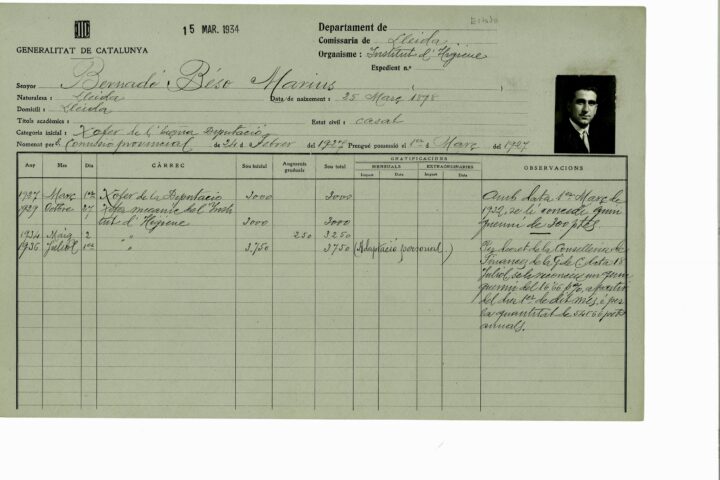 Estado
15 MAR. 1934
Departament de
Comissaria de Lleida
Organisme : Institut d'Higiene
Expedient n.º
GENERALITAT DE CATALUNYA
Senyor Bernadó Béso Marius
Naturalesa : Lleida Data de naixement : 25 Març 1898
Domicili : Lleida
Títols acadèmics : Estat civil : casat
Categoria inicial : Xofer de l'antiga Diputació
Nomenat per Comissió provincial de 24 Febrer del 1927 Prengué possessió el 1er Març del 1927
Any Mes Dia CÀRREC Sou inicial Augments graduals Sou total GRATIFICACIONS OBSERVACIONS
MENSUALS EXTRAORDINÀRIES
Import Data Import Data
1927 Març 1er Xofer de la Diputació 3000 3000
1929 Octbre 27 Xofer mecànic de l'Insti-
tut d'Higiene 3000 3000
1934 Maig 2 " 250 3250
1935 Juliol 1er " 3,750 3750 (Adaptació personal)
Amb data 1er Març de
1932, se li concedí quin-
quenni de 300 ptes
Per decret de la Conselleria de
Finances de la G. de C. data 18
Juliol, se li reconeix un quin-
quenni del 16,66 p%, a partir
del dia 1er de dit mes, o per
la quantitat de
anuals.